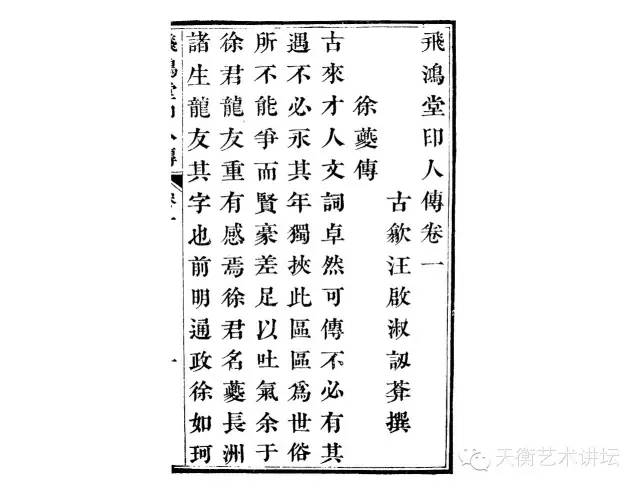 飛鴻堂印人傳卷一
古歙汪啟淑訒葊撰
徐夔傳
古來才人文詞卓然可傳不必有其
遇不必永其年獨挾此區區爲世俗
所不能爭而賢豪差足以吐氣余于
徐君龍友重有感焉徐君名夔長洲
諸生龍友其字也前明通政徐如珂
天衡艺术讲坛